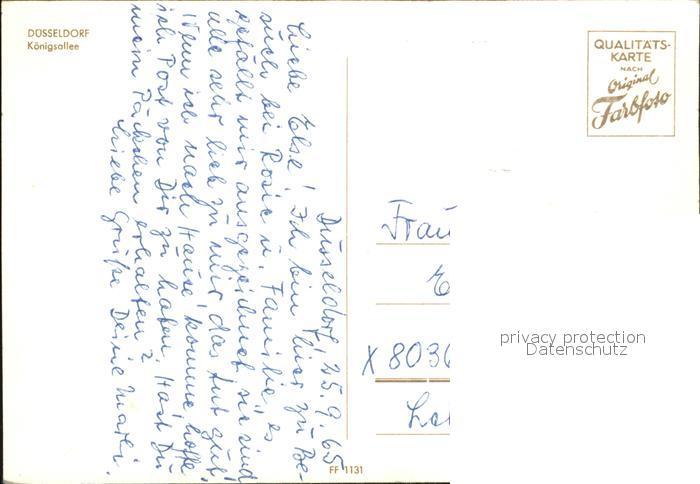 DÜSSELDORF
Königsallee
QUALITÄTS-
KARTE
NACH
Original
Farbfoto
Düsseldorf, 25.9.65
Liebe Else! Ich bin hier zu Be-
such bei Rosie u. Familie, es
gefällt mir ausgezeichnet sie sind
alle sehr lieb zu mir, das tut gut!
Wenn ich nach Hause komme, hoffe
ich Post von Dir zu haben. Hast Du
mein Päckchen erhalten?
Liebe Grüße Deine
Frau
E
X 8036
FF 1131
privacy protection
Datenschutz